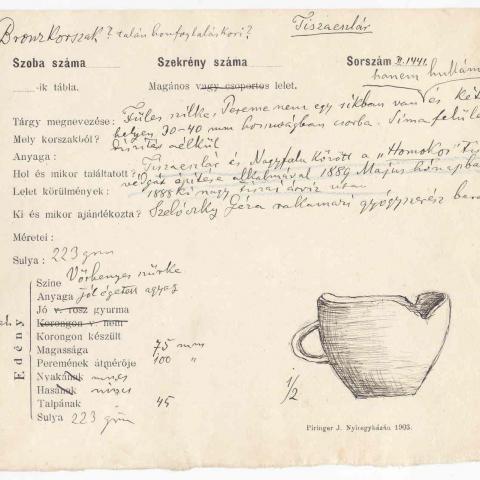 Bronzkorszak? talán honfoglaláskori?
Tiszaeszlár
Szoba száma
Szekrény száma
Sorszám II.1441.
-ik tábla.
Magános vagy csoportos lelet.
hanem hullám
Tárgy megnevezése: Füles szilke, Pereme nem egy síkban van és két
Mely korszakból? helyen 30-40 mm hosszúságban csorba. Síma felüle
díszítés nélkül
Anyaga:
Hol és mikor találtatott? Tiszaeszlár és Nagyfalu között a „Homokos" Tis
védgát építése alkalmával 1889 Május hónapban
Lelet körülmények: 1888 ki nagy tiszai árvíz után
Ki és mikor ajándékozta? Szelóczky Géza rakamazi gyógyszerész
Méretei:
Sulya: 223 grm
Edény
Szine Vörhenyes szürke
Anyaga jól égetett agyag
Jó v. rosz gyurma
Korongon v. nem
Korongon készült
Magassága 75 mm
Peremének átmérője 100 "
Nyakának nincs
Hasának nincs
Talpának 45
Sulya 223 grm
1/2
Piringer J. Nyiregyházán 1903.